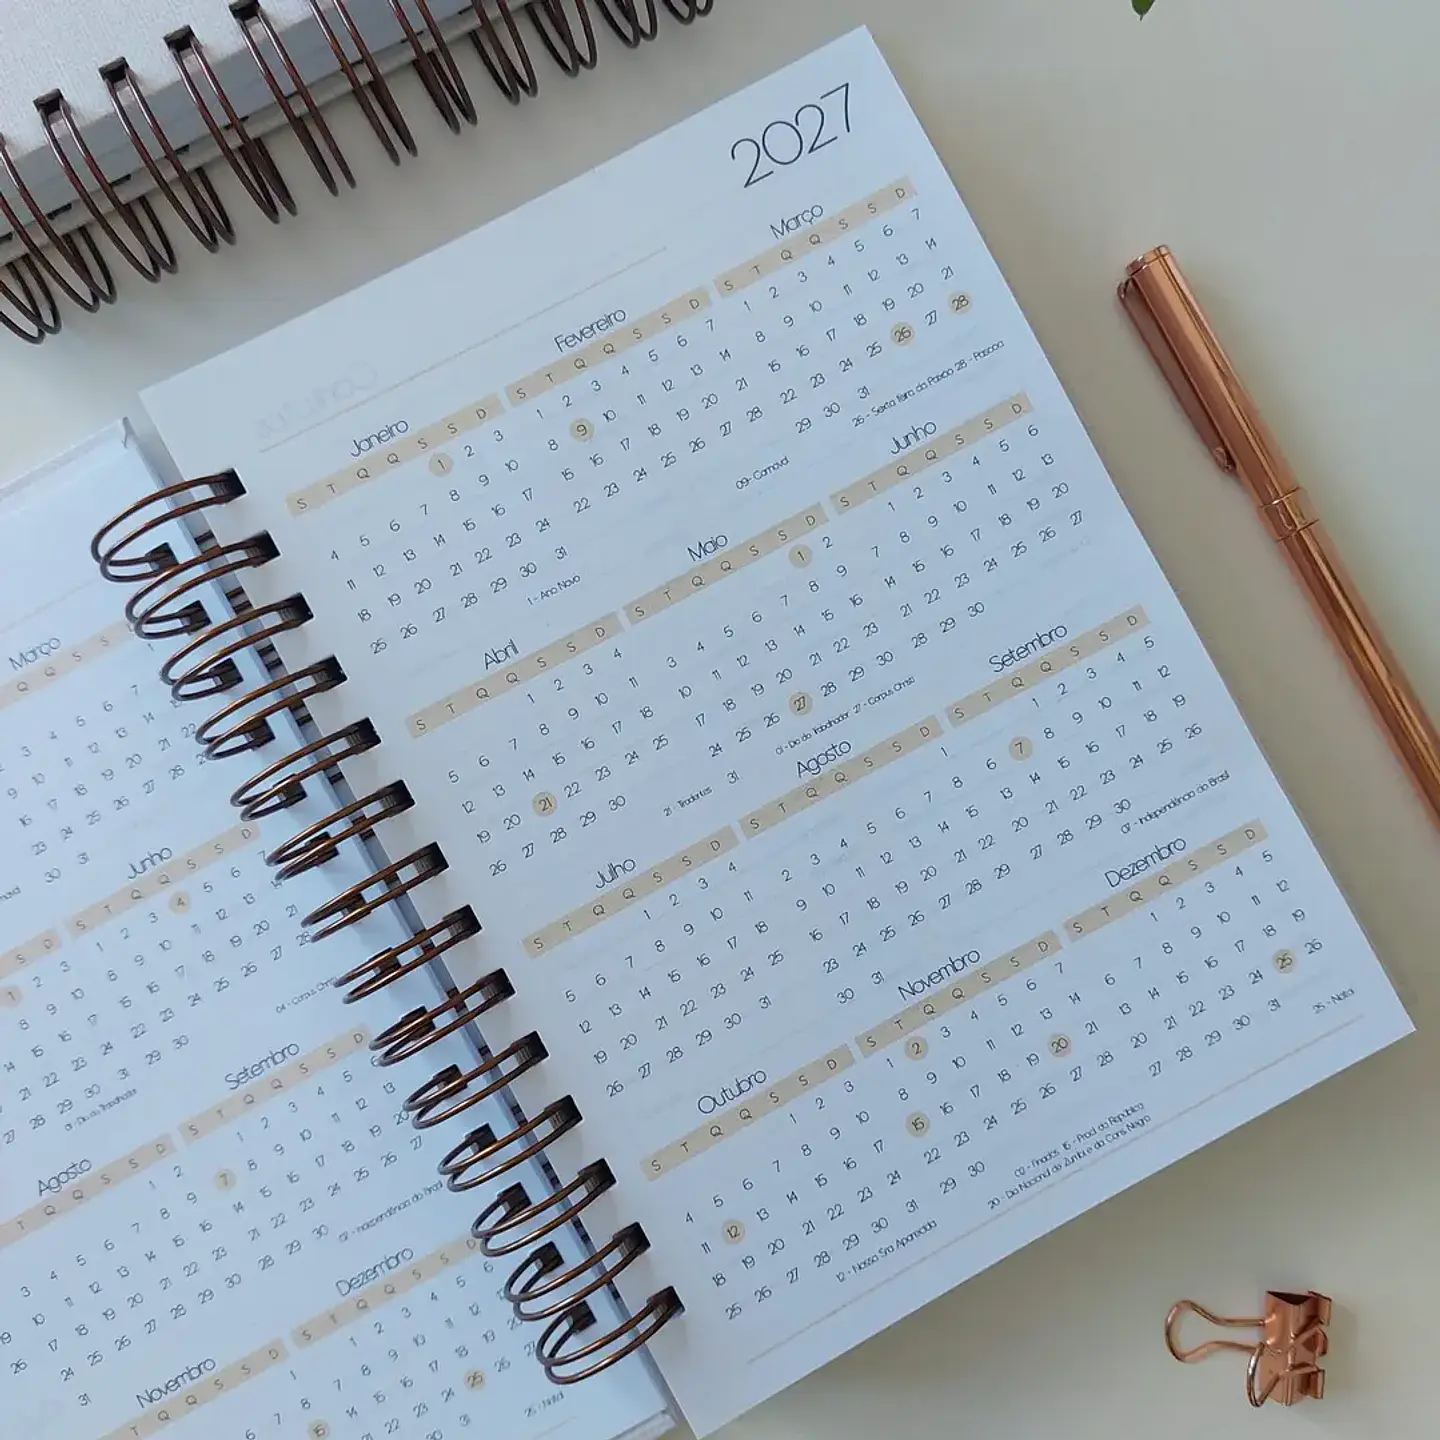 2027
Janeiro
S T Q Q S S D
1 2 3
4 5 6 7 8 9 10
11 12 13 14 15 16 17
18 19 20 21 22 23 24
25 26 27 28 29 30 31
1 - Ano Novo
Fevereiro
S T Q Q S S D
1 2 3 4 5 6 7
8 9 10 11 12 13 14
15 16 17 18 19 20 21
22 23 24 25 26 27 28
09 - Carnaval
Março
S T Q Q S S D
1 2 3 4 5 6 7
8 9 10 11 12 13 14
15 16 17 18 19 20 21
22 23 24 25 26 27 28
29 30 31
26 - Sexta feira da Paixão 28 - Páscoa
Abril
S T Q Q S S D
1 2 3 4
5 6 7 8 9 10 11
12 13 14 15 16 17 18
19 20 21 22 23 24 25
26 27 28 29 30
21 - Tiradentes
Maio
S T Q Q S S D
1 2
3 4 5 6 7 8 9
10 11 12 13 14 15 16
17 18 19 20 21 22 23
24 25 26 27 28 29 30
31
01 - Dia do Trabalhador 27 - Corpus Christi
Junho
S T Q Q S S D
1 2 3 4 5 6
7 8 9 10 11 12 13
14 15 16 17 18 19 20
21 22 23 24 25 26 27
28 29 30
Julho
S T Q Q S S D
1 2 3 4
5 6 7 8 9 10 11
12 13 14 15 16 17 18
19 20 21 22 23 24 25
26 27 28 29 30 31
Agosto
S T Q Q S S D
1
2 3 4 5 6 7 8
9 10 11 12 13 14 15
16 17 18 19 20 21 22
23 24 25 26 27 28 29
30 31
Setembro
S T Q Q S S D
1 2 3 4 5
6 7 8 9 10 11 12
13 14 15 16 17 18 19
20 21 22 23 24 25 26
27 28 29 30
07 - Independência do Brasil
Outubro
S T Q Q S S D
1 2 3
4 5 6 7 8 9 10
11 12 13 14 15 16 17
18 19 20 21 22 23 24
25 26 27 28 29 30 31
12 - Nossa Sra Aparecida
Novembro
S T Q Q S S D
1 2 3 4 5 6 7
8 9 10 11 12 13 14
15 16 17 18 19 20 21
22 23 24 25 26 27 28
29 30
02 - Finados 15 - Procl da República
20 - Dia Nacional de Zumbi e da Cons Negra
Dezembro
S T Q Q S S D
1 2 3 4 5
6 7 8 9 10 11 12
13 14 15 16 17 18 19
20 21 22 23 24 25 26
27 28 29 30 31
25 - Natal
Março
Junho
04 - Corpus Christi
01 - Dia do Trabalhador
Agosto
Setembro
07 - Independência do Brasil
Novembro
Dezembro
25 - Natal